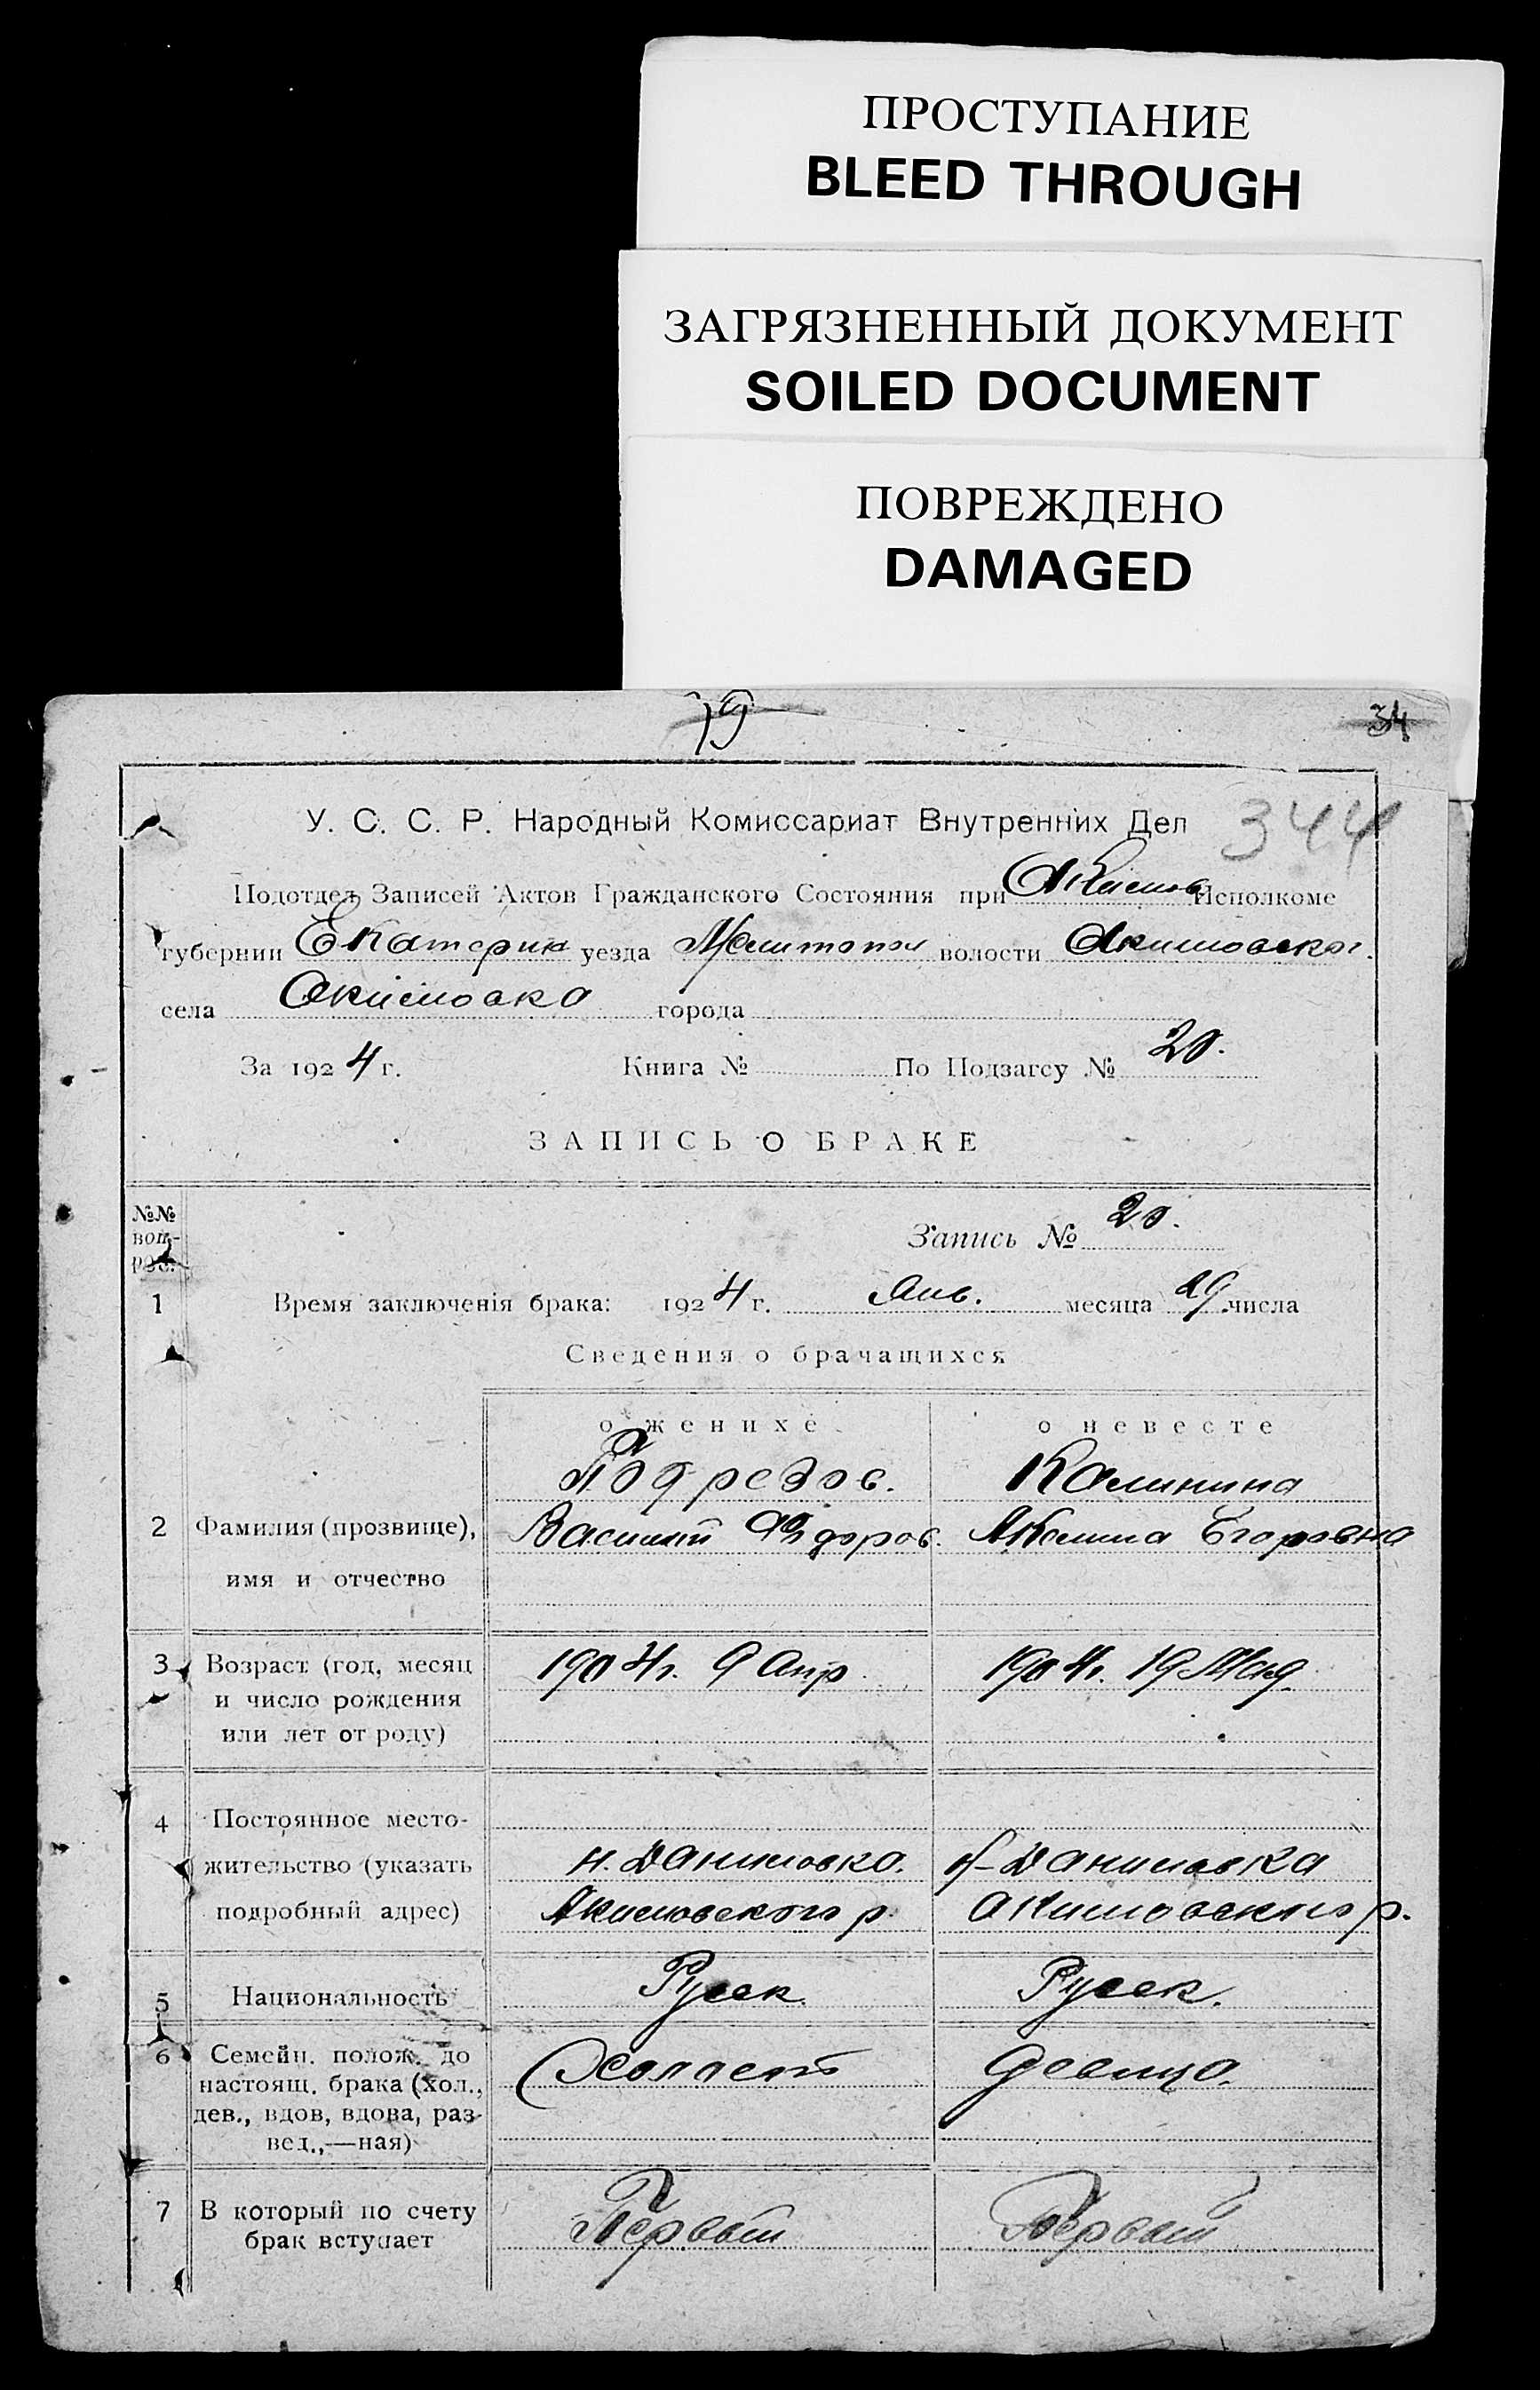 ПРОСТУПАНИЕ
BLEED THROUGH
ЗАГРЯЗНЕННЫЙ ДОКУМЕНТ
SOILED DOCUMENT
ПОВРЕЖДЕНО
DAMAGED
79 34
344
У. С. С. Р. Народный Комиссариат Внутренних Дел
Подотдел Записей Актов Гражданского Состояния при Акимов. Исполкоме
губернии Екатерин уезда Мелитопол волости Акимовской
села Акимовка города
За 1924 г. Книга № По Подзагсу № 20.
ЗАПИСЬ О БРАКЕ
№№ вопрос.
Запись № 20.
1 Время заключенія брака: 1924 г. Янв. месяца 29 числа
Сведения о брачащихся
о женихе о невесте
Подрезов. Калинина
2 Фамилия (прозвище), Василий Федоров. Акелина Егоровна
имя и отчество
3 Возраст (год, месяц 1904 г. 9 Апр. 1904 г. 19 Мая.
и число рождения
или лет от роду)
4 Постоянное место-
жительство (указать Н. Даниловка. Н-Даниловка
подробный адрес) Акимовского р. Акимовского р.
5 Национальность Русск. Русск.
6 Семейн. полож. до Холост девица.
настоящ. брака (хол.,
дев., вдов, вдова, раз-
вед.,—ная)
7 В который по счету Первый Первый
брак вступает